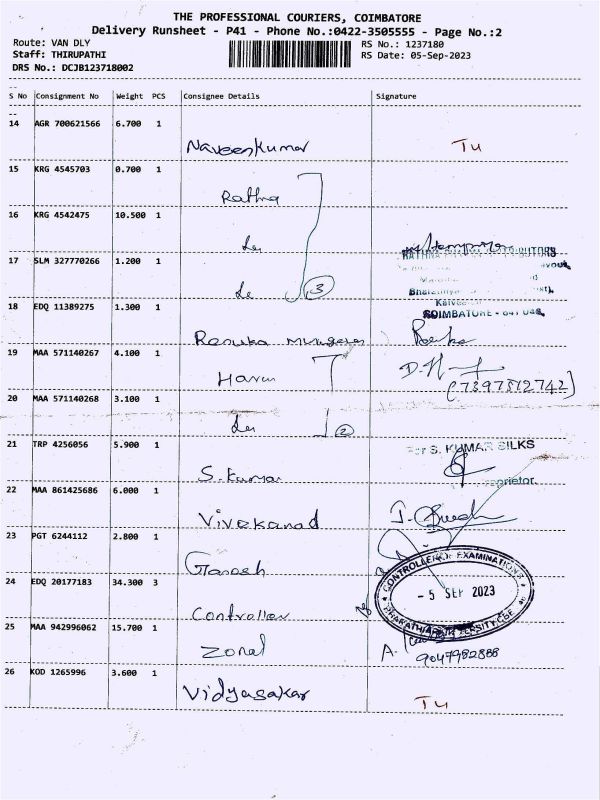 THE PROFESSIONAL COURIERS, COIMBATORE
Delivery Runsheet - P41 - Phone No.:0422-3505555 - Page No.:2
Route: VAN DLY RS No.: 1237180
Staff: THIRUPATHI RS Date: 05-Sep-2023
DRS No.: DCJB123718002
S No Consignment No Weight PCS Consignee Details Signature
14 AGR 700621566 6.700 1
Naveenkumar Tu
15 KRG 4545703 0.700 1
Rathna
16 KRG 4542475 10.500 1
do
17 SLM 327770266 1.200 1
do 3
COIMBATORE - 641 046
18 EDQ 11389275 1.300 1
Renuka
19 MAA 571140267 4.100 1
Harun
(7397812742)
20 MAA 571140268 3.100 1
do 2
21 TRP 4256056 5.900 1
For S. KUMAR SILKS
S. Kumar Proprietor
22 MAA 861425686 6.000 1
Vivekanad
23 PGT 6244112 2.800 1
Ganesh
CONTROLLER OF EXAMINATIONS
24 EDQ 20177183 34.300 3
- 5 SEP 2023
Controller
25 MAA 942996062 15.700 1
Zonal
9047982888
26 KOD 1265996 3.600 1
Vidyasakar Tu